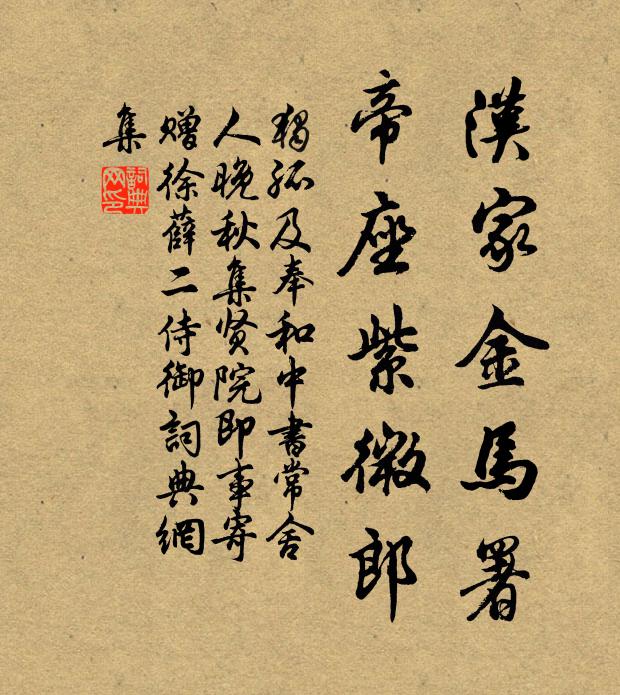 漢家金馬署
帝座紫微郎
獨孤及奉和中書常舍
人晚秋集贤院即事寄
贈徐薛二侍御詞典網
集
詞典網印